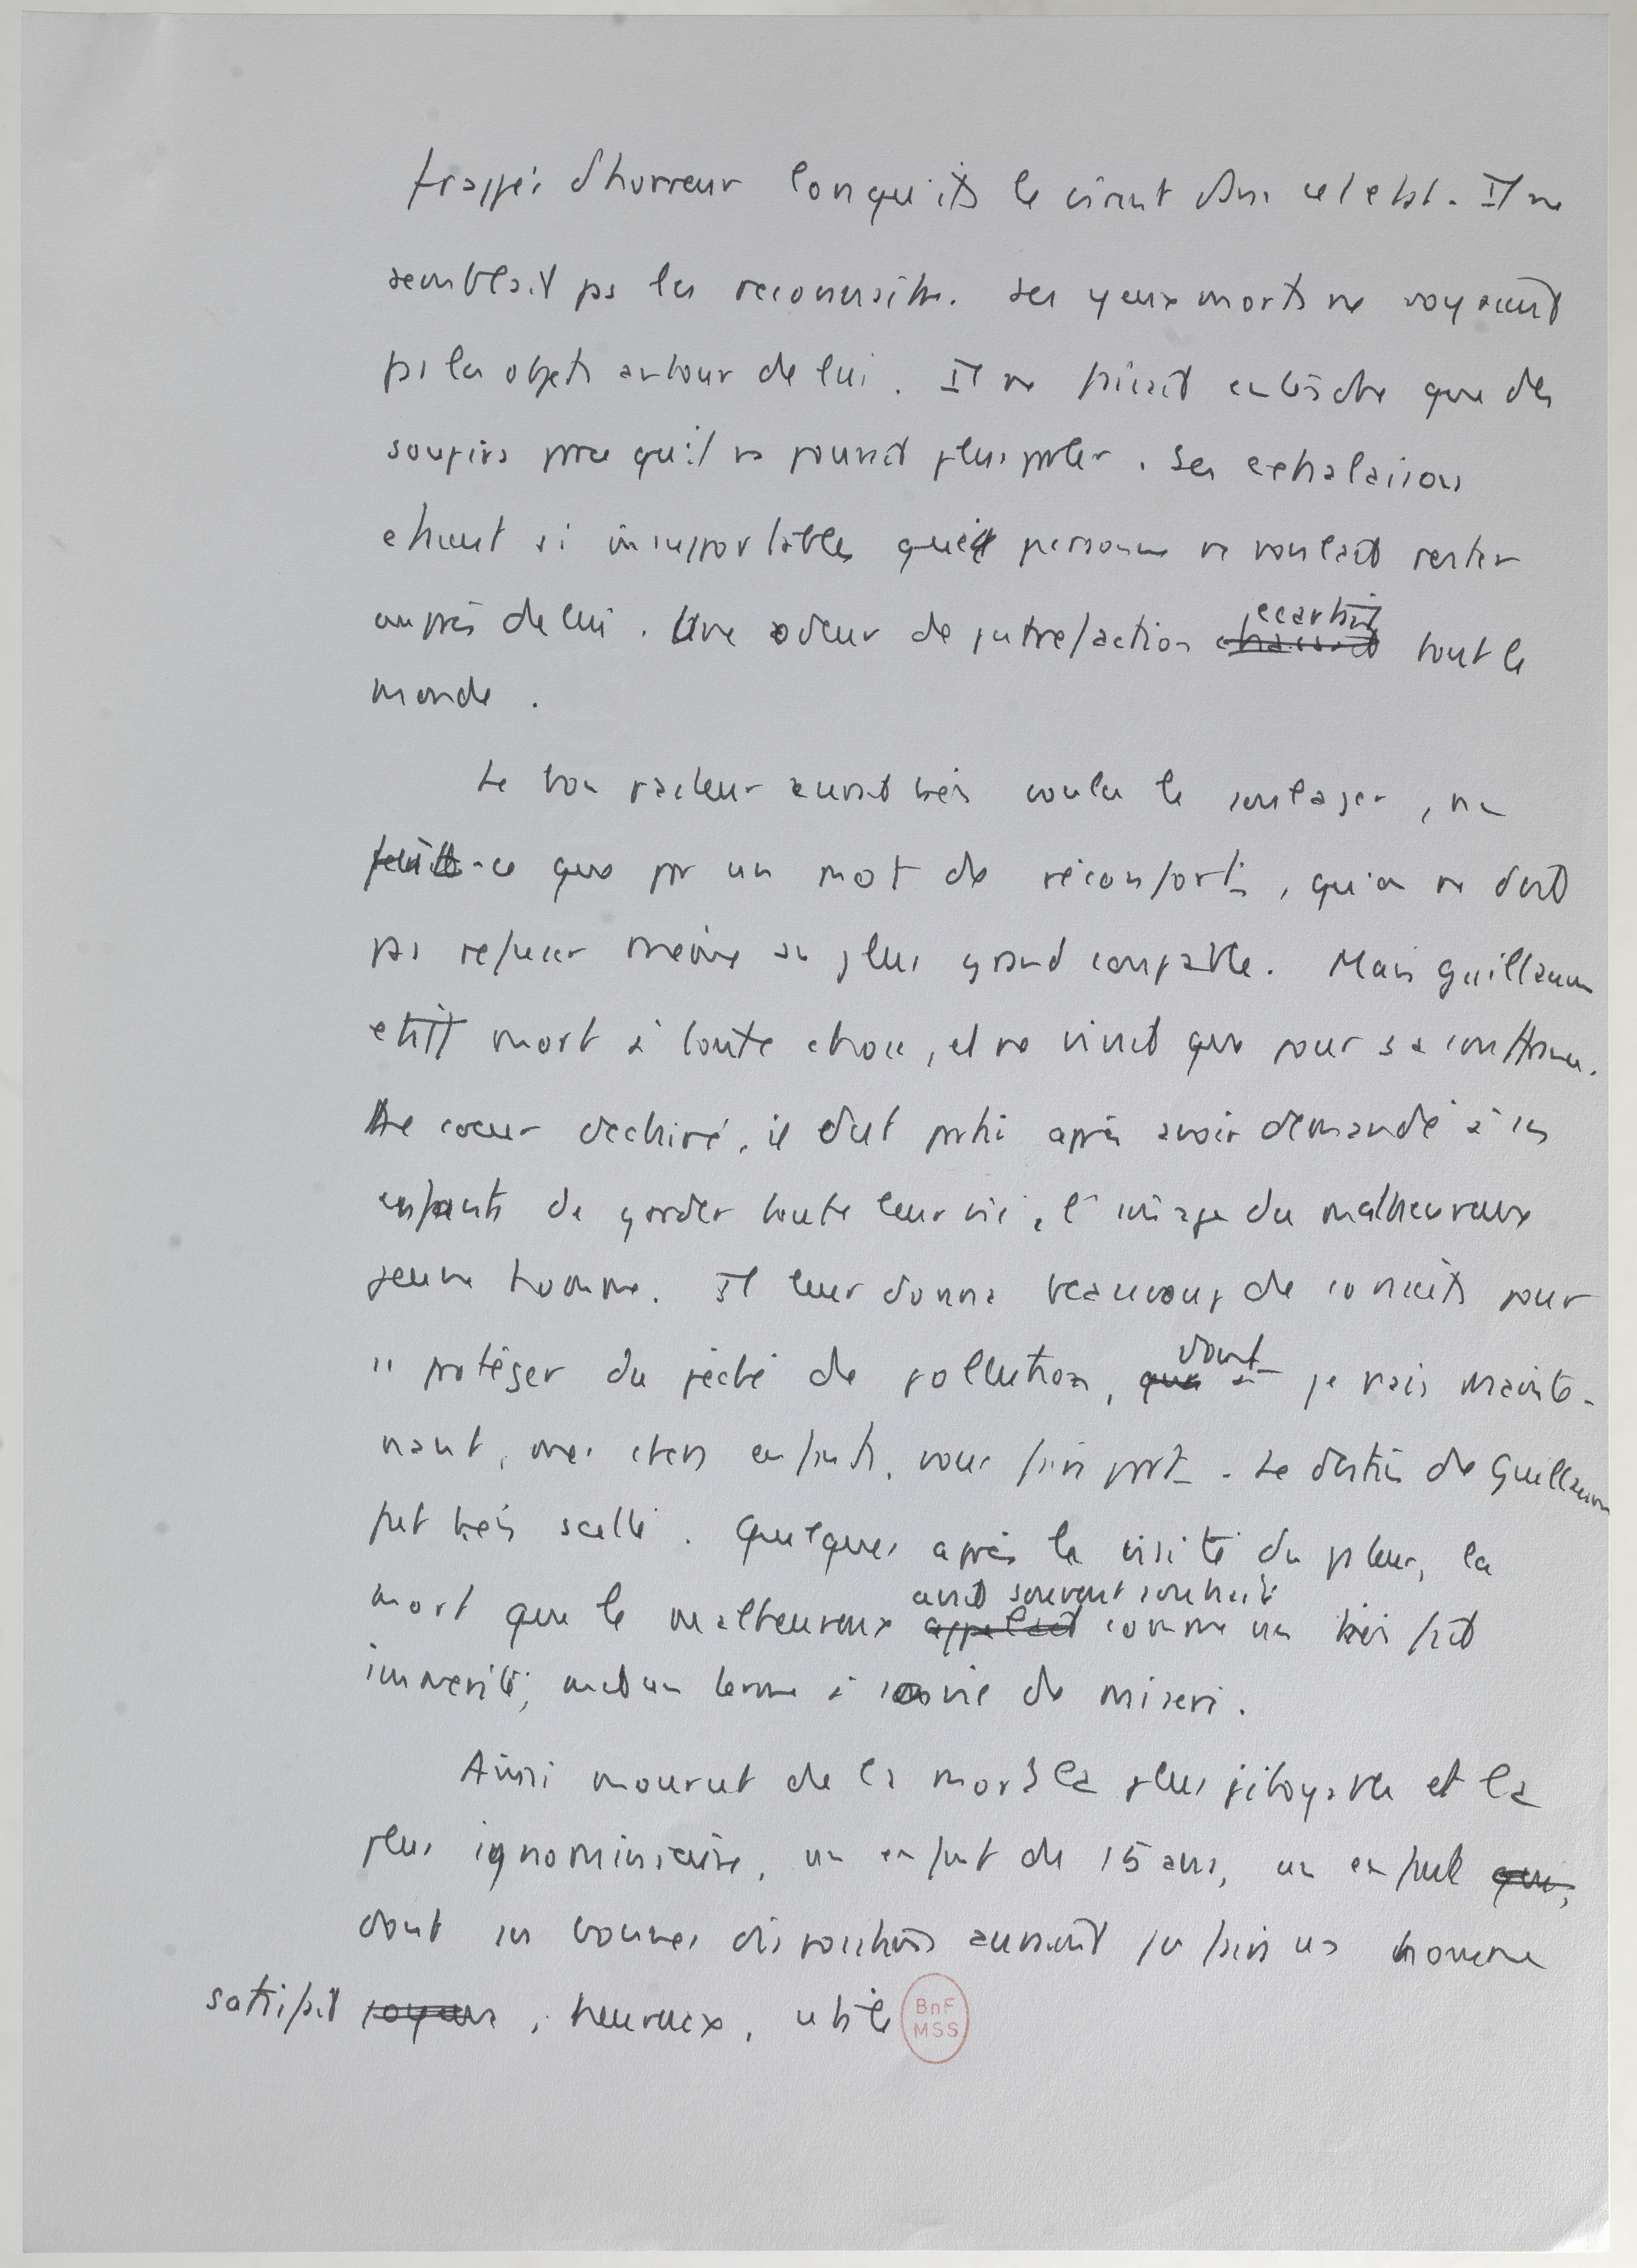 frappés d'horreur lorsqu'ils le virent dans cet etat. Il ne
semblait pas les reconnaitre. Ses yeux morts ne voyaient
pas les objets autour de lui. Il ne faisait entendre que des
soupirs parce qu'il ne pouvait plus parler. Ses exhalaisons
etaient si insupportables que personne ne voulait rester
auprès de lui. Une odeur de putréfaction écartait tout le
monde.
Le bon pasteur aurait bien voulu le soulager, ne
-ce que par un mot de réconfort, qu'on ne doit
pas refuser même au plus grand coupable. Mais Guillaume
etait mort à toute chose, et ne vivait que pour sa souffrance.
Le coeur déchiré, il dut partir après avoir demandé à ses
enfants de garder toute leur vie, l'image du malheureux
jeune homme. Il leur donna beaucoup de conseils pour
se protéger du péché de pollution, dont je vais mainte-
nant, mes chers enfants, vous faire part. Le destin de Guillaume
fut bien scellé. Quelques après la visite du pasteur, la
mort que le malheureux avait souvent souhaité comme un bienfait
immérité, mit un terme à sa vie de misère.
Ainsi mourut de la mort la plus pitoyable et la
plus ignominieuse, un enfant de 15 ans, un enfant qui,
dont les bonnes dispositions auraient pu faire un homme
satisfait, heureux, utile
BnF
MSS